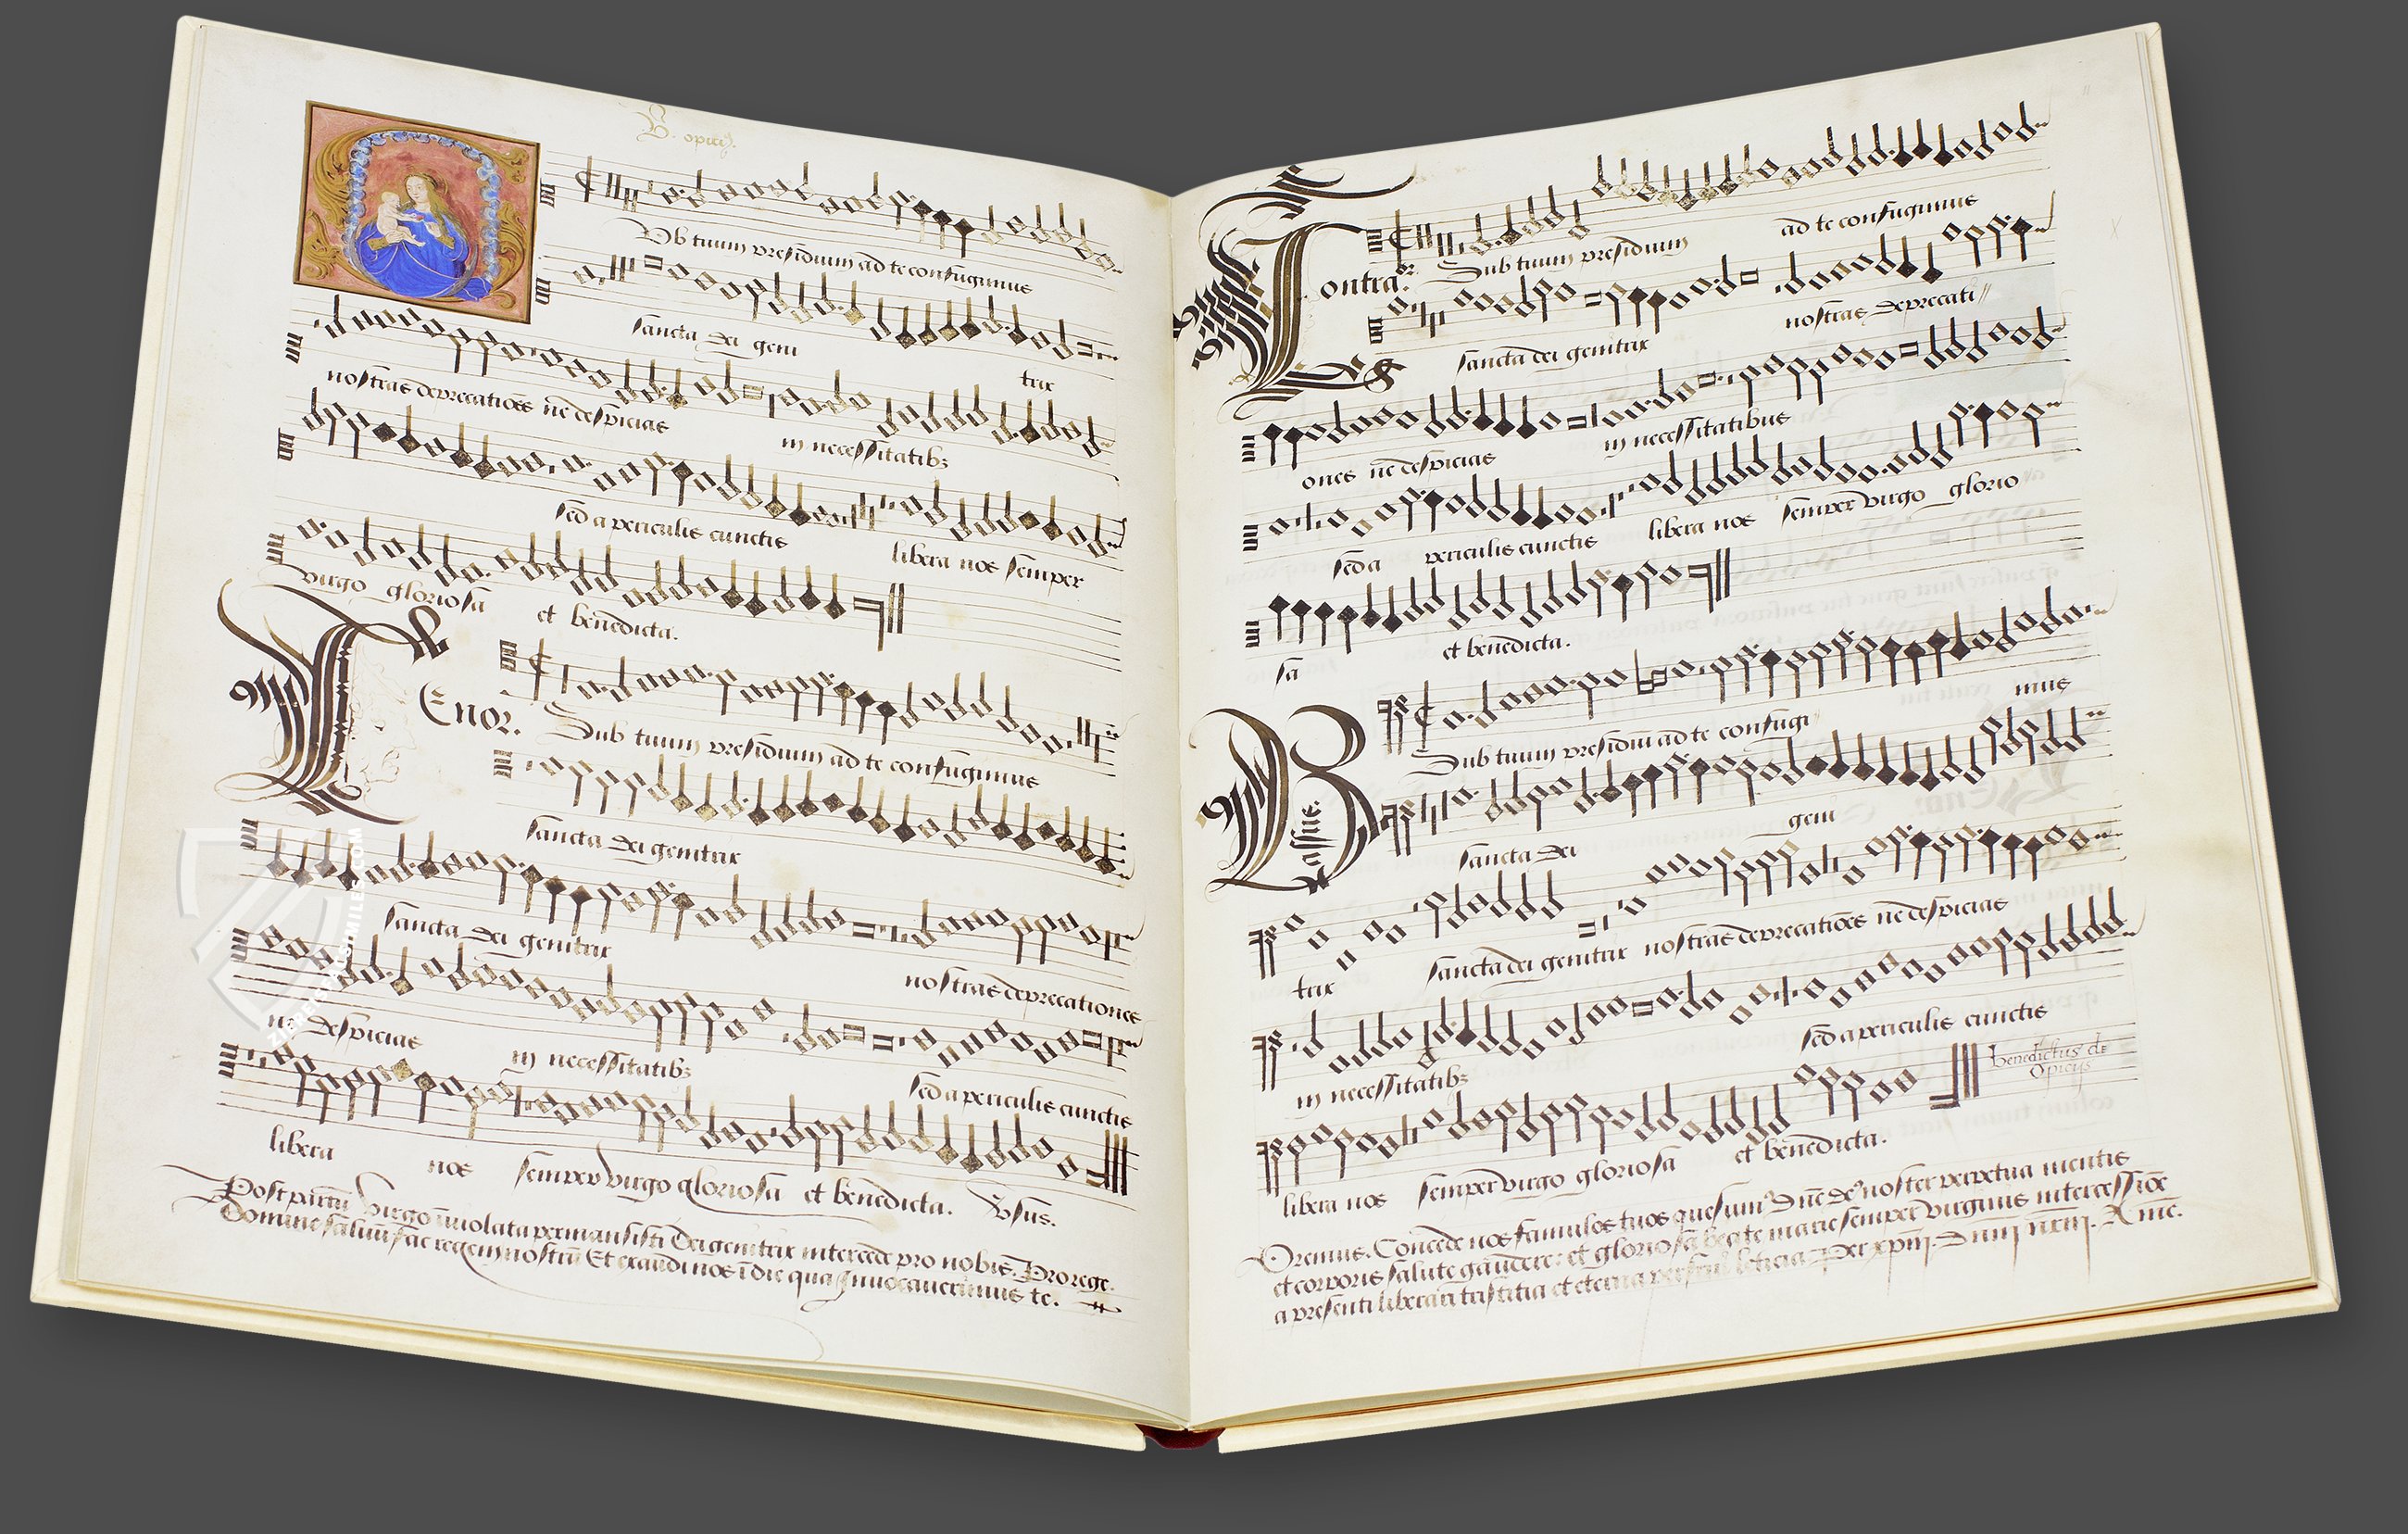 B. opitijs
Ub tuum presidium ad te confugimus
sancta dei geni trix
nostras deprecatiões ne despicias in necessitatibꝫ
sed a periculis cunctis libera nos semper
virgo gloriosa et benedicta.
Tenor. Sub tuum presidium ad te confugimus
sancta dei genitrix
sancta dei genitrix nostras deprecationes
ne despicias in necessitatibꝫ sed a periculis cunctis
libera nos semper virgo gloriosa et benedicta. Vsus.
Post partũ virgo ĩuiolata permansisti Dei genitrix intercede pro nobis. Pro rege.
Domine saluũ fac regem nostrũ Et exaudi nos ĩ die qua Inuocauerimus te.
Contraor. Sub tuum presidium ad te confugimus
sancta dei genitrix nostras deprecati
ones ne despicias in necessitatibus
sed a periculis cunctis libera nos semper virgo glorio
sa et benedicta.
Bassus. Sub tuum presidiũ ad te confugi mus
sancta dei geni
trix sancta dei genitrix nostras deprecatiões ne despicias
in necessitatibꝫ sed a periculis cunctis
benedictus de
Opicijs
libera nos semper virgo gloriosa et benedicta.
Oremus. Concede nos famulos tuos quesumꝰ dñe deꝰ noster perpetua mentis
et corporis salute gaudere: et gloriosa beate marie semper virginis intercessiõe
a presenti liberari tristitia et eterna perfrui leticia. Per xpm̃. Dnm̃ nrm̃. Amē.
ZIEREIS FACSIMILES.COM